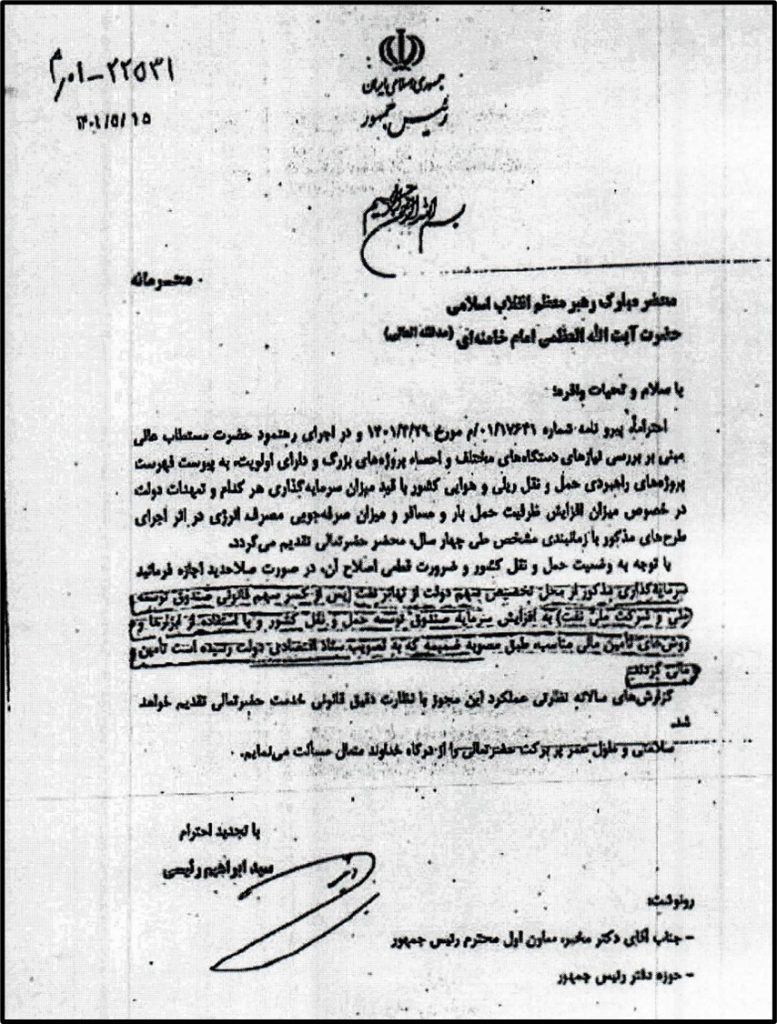 ۰۱-۲۲۵۳۱م
۱۴۰۱/۵/۱۵
جمهوری اسلامی ایران
رئیس جمهور
بسم الله الرحمن الرحیم
محرمانه
محضر مبارک رهبر معظم انقلاب اسلامی
حضرت آیت الله العظمی امام خامنه‌ای (مدظله العالی)
با سلام و تحیات وافره؛
احتراماً، پیرو نامه شماره ۰۱/۱۷۶۴۱/م مورخ ۱۴۰۱/۴/۲۹ و در اجرای رهنمود حضرت مستطاب عالی
مبنی بر بررسی نیازهای دستگاه‌های مختلف و احصاء پروژه‌های بزرگ و دارای اولویت، به پیوست فهرست
پروژه‌های راهبردی حمل و نقل ریلی و هوایی کشور با قید میزان سرمایه‌گذاری هر کدام و تعهدات دولت
در خصوص میزان افزایش ظرفیت حمل بار و مسافر و میزان صرفه‌جویی مصرف انرژی در اثر اجرای
طرح‌های مذکور با زمانبندی مشخص طی چهار سال، محضر حضرتعالی تقدیم می‌گردد.
با توجه به وضعیت حمل و نقل کشور و ضرورت قطعی اصلاح آن، در صورت صلاحدید اجازه فرمائید
سرمایه‌گذاری مذکور از محل تخصیص سهم دولت از تهاتر نفت (پس از کسر سهم قانونی صندوق توسعه
ملی و شرکت ملی نفت) به افزایش سرمایه صندوق توسعه حمل و نقل کشور و با استفاده از ابزارها و
روش‌های تأمین مالی مناسب، طبق مصوبه ضمیمه که به تصویب ستاد اقتصادی دولت رسیده است تأمین
مالی گردد.
گزارش‌های سالانه نظارتی عملکرد این مجوز با نظارت دقیق قانونی خدمت حضرتعالی تقدیم خواهد
شد.
سلامتی و طول عمر پر برکت حضرتعالی را از درگاه خداوند متعال مسألت می‌نمایم.
با تجدید احترام
سید ابراهیم رئیسی
رونوشت:
- جناب آقای دکتر مخبر، معاون اول محترم رئیس جمهور
- حوزه دفتر رئیس جمهور